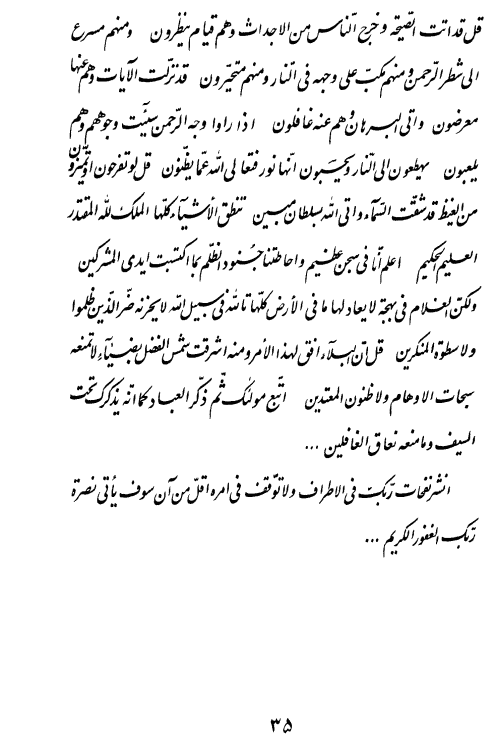 قل قد اتت الصّيحة و خرج النّاس من الاجداث و هم قيام ينظرون و منهم مسرع
الى شطر الرّحمن و منهم مكبّ على وجهه فى النّار و منهم متحيّرون قد نزّلت الآيات و هم عنها
معرضون و اتى البرهان و هم عنه غافلون اذا راوا وجه الرّحمن سيئت وجوههم و هم
يلعبون يهطعون الى النّار و يحسبون انّها نور فتعالى اللّه عمّا يظنّون قل لو تفرحون او تميّزون
من الغيظ قد شقّت السّمآء و اتى اللّه بسلطان مبين تنطق الأشيآء كلّها الملك للّه المقتدر
العليم الحكيم اعلم انّا فى سجن عظيم و احاطتنا جنود الظّلم بما اكتسبت ايدى المشركين
ولكنّ الغلام فى بهجة لا يعادلها ما فى الأرض كلّها تاللّه فى سبيل اللّه لا يحزنه ضرّ الّذين ظلموا
ولا سطوة المنكرين قل انّ البلآء افق لهذا الأمر و منه اشرقت شمس الفضل بضيآء لا تمنعه
سبحات الاوهام ولا ظنون المعتدين اتّبع موليك ثمّ ذكّر العباد كما انّه يذكّرك تحت
السيف و ما منعه نعاق الغافلين ...
انشر نفحات ربّك فى الاطراف ولا توقّف فى امره اقلّ من آن سوف يأتى نصرة
ربّك الغفور الكريم ...
۳۵